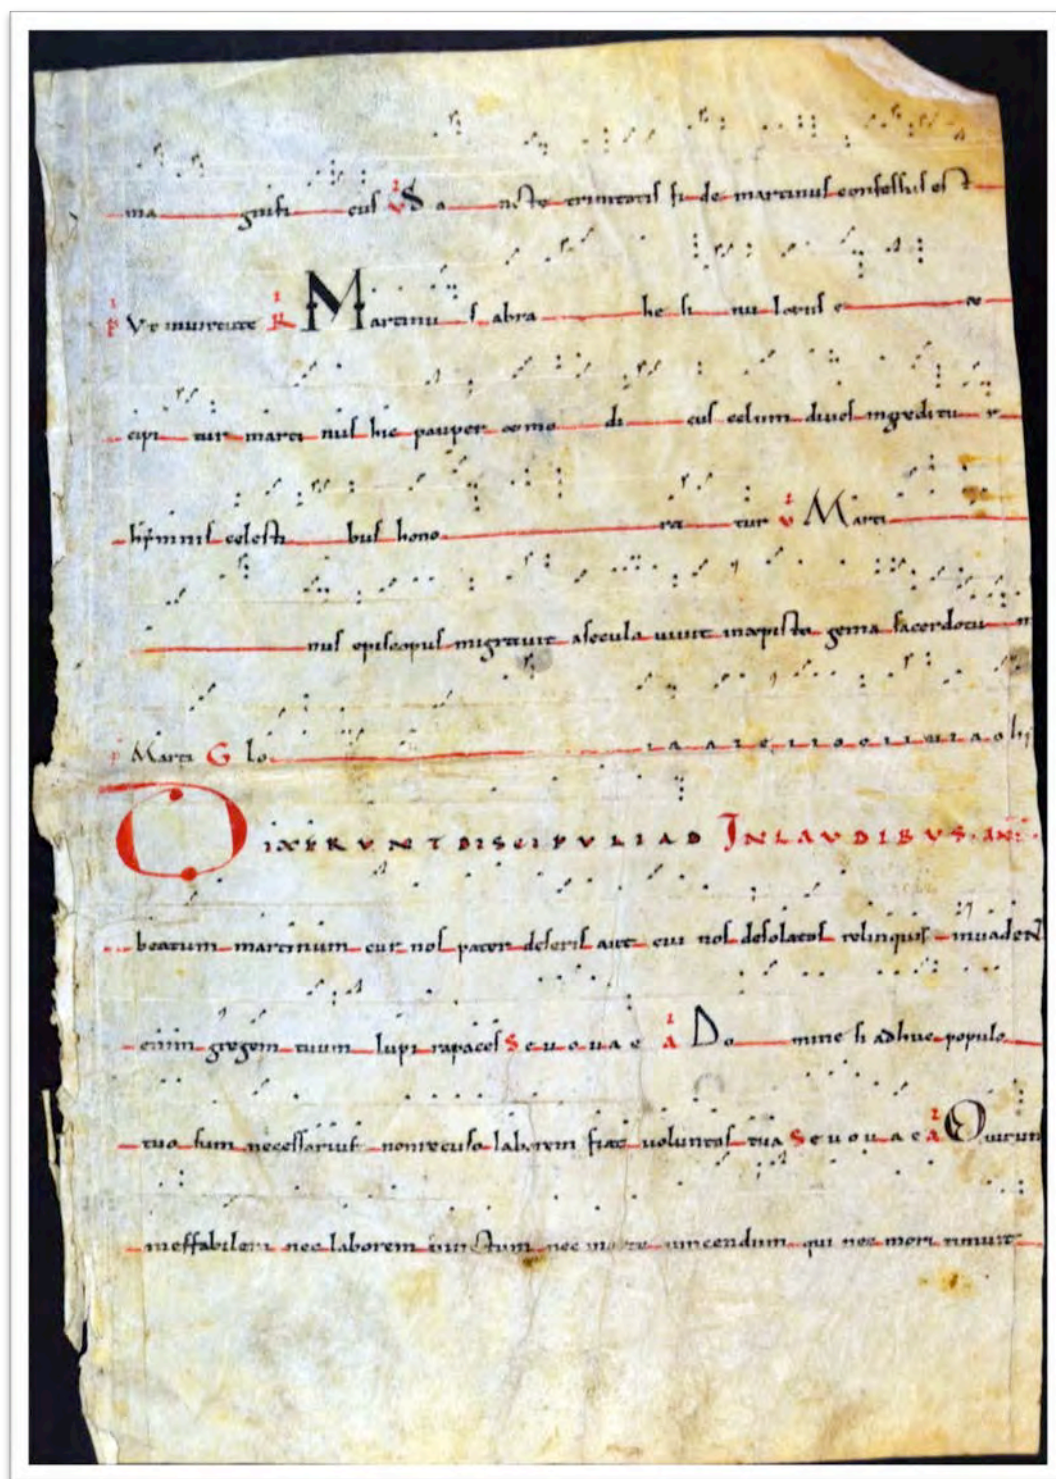 ma gnifi cus V S a ncte trinitatis fi de martinus confessus est
P Vt inuirtute R Martinu s abra he si nu letus e x
cipi tur marti nus hic pauper et mo di cus celum diues ingreditu r
hymnis celesti bus hono ra tur V Marti
nus episcopus migrauit aseculo uiuit inxpisto gema sacerdotu m
P Marti G lo
DIXERVNT DISCIPVLI AD INLAVDIBVS. AN
beatum martinum cur nos pater deseris aut cui nos desolatos relinquis inuadeN
enim gregem tuum lupi rapaces s e u o u a e a Do mine si adhuc populo
tuo sum necessarius nonrecuso laborem fiat uoluntas tua s e u o u a e a O uirum
ineffabilem nec laborem uinctum nec morte uincendum qui nec mori timuit